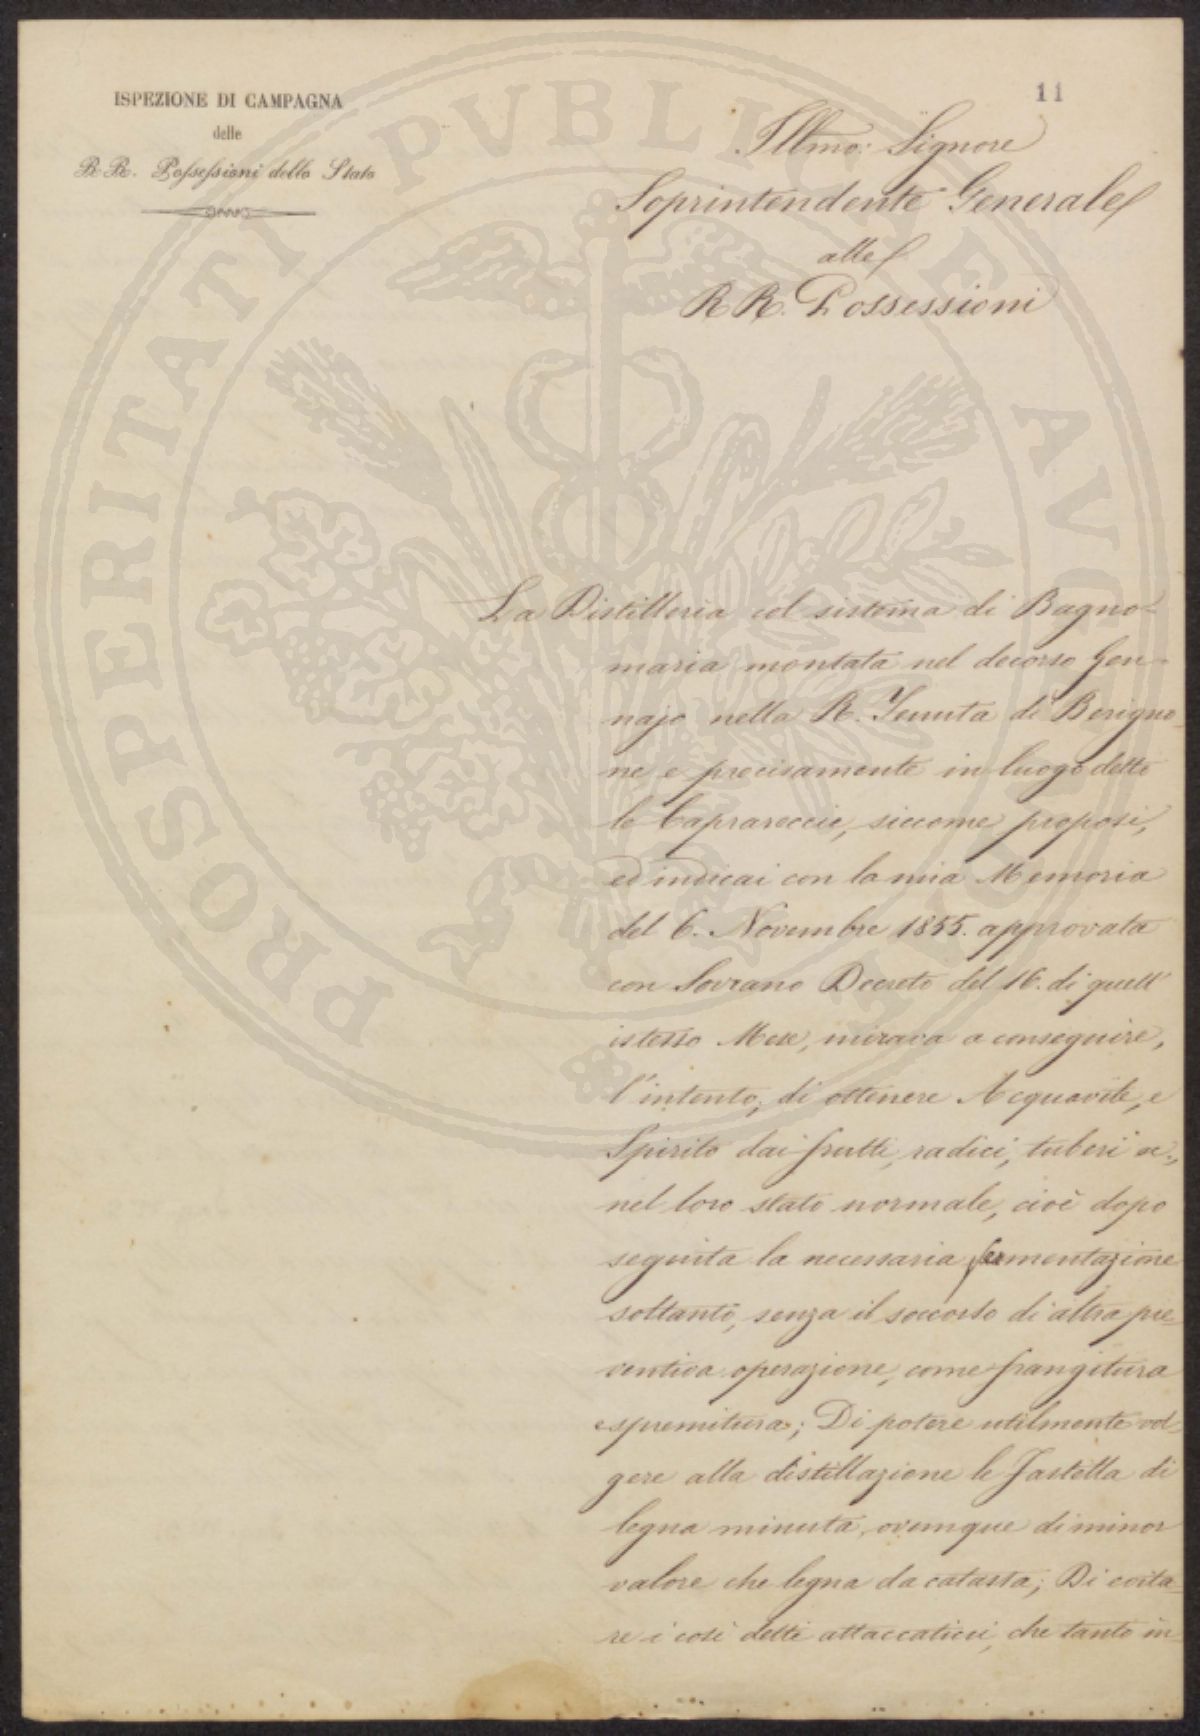 11
ISPEZIONE DI CAMPAGNA
delle
RR. Possessioni dello Stato
Illmo: Signore
Soprintendente Generale
alle
RR. Possessioni
La Distilleria col sistema di Bagno-
maria montata nel decorso Gen-
najo nella R. Tenuta di Berigno-
ne e precisamente in luogo detto
le Caprareccie, siccome proposi,
ed indicai con la mia Memoria
del 6. Novembre 1855. approvata
con Sovrano Decreto del 16. di quell'
istesso Mese, mirava a conseguire,
l'intento, di ottenere Acquavite, e
Spirito dai frutti, radici, tuberi ec.,
nel loro stato normale, cioè dopo
seguita la necessaria fermentazione
soltanto, senza il soccorso di altra pre-
ventiva operazione, come frangitura
espremitura; Di potere utilmente vol-
gere alla distillazione le Fastella di
legna minuta, ovunque di minor
valore che legna da catasta; Di evita-
re i così detti attaccaticci, che tanto in-
PROSPERITATI PVBLICAE AVGENDAE